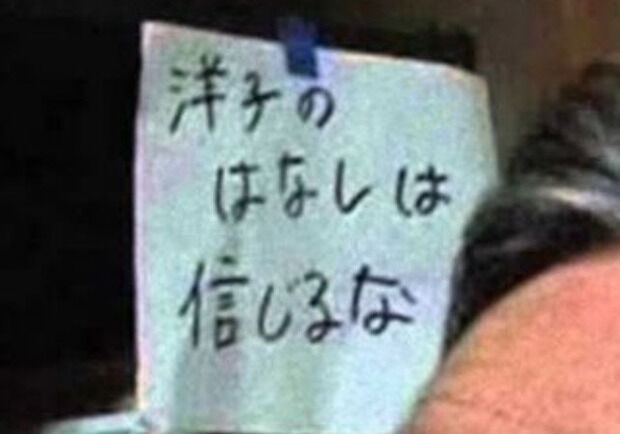 洋子の
はなしは
信じるな